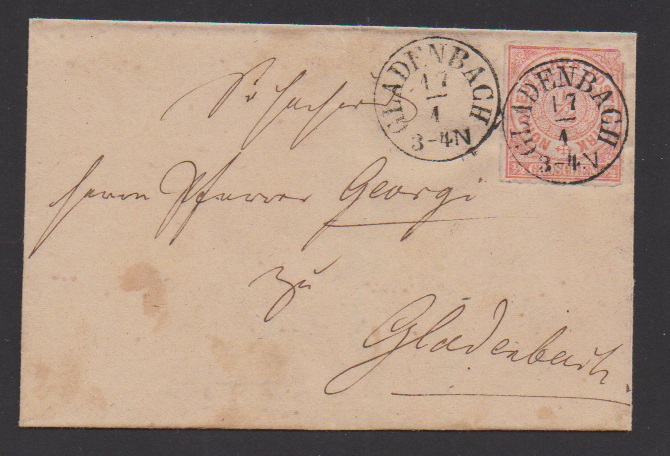 GLADENBACH
17
4
3-4N
GLADENBACH
17
4
3-4N
herrn Pfarrer Georgi
zu
Gladenbach.